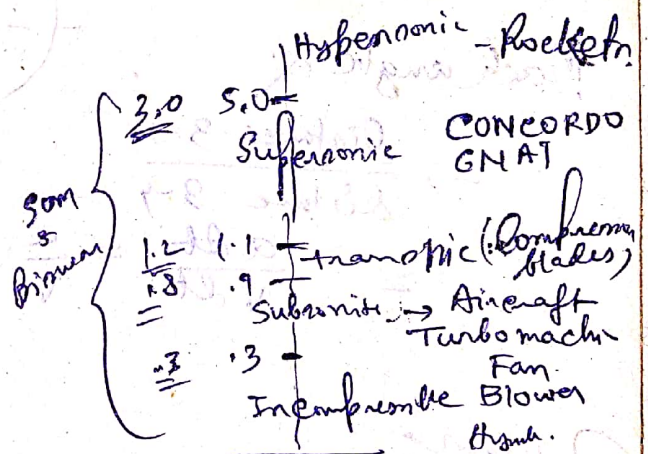 Hypersonic - Rockets.
3.0 5.0
Supersonic
CONCORDO
GNAT
Som
&
Biswas
1.2 1.1 transonic (Compressor
blades)
.8 .9
Subsonic → Aircraft
Turbomachi
.3 .3
Fan
Incompressible Blower